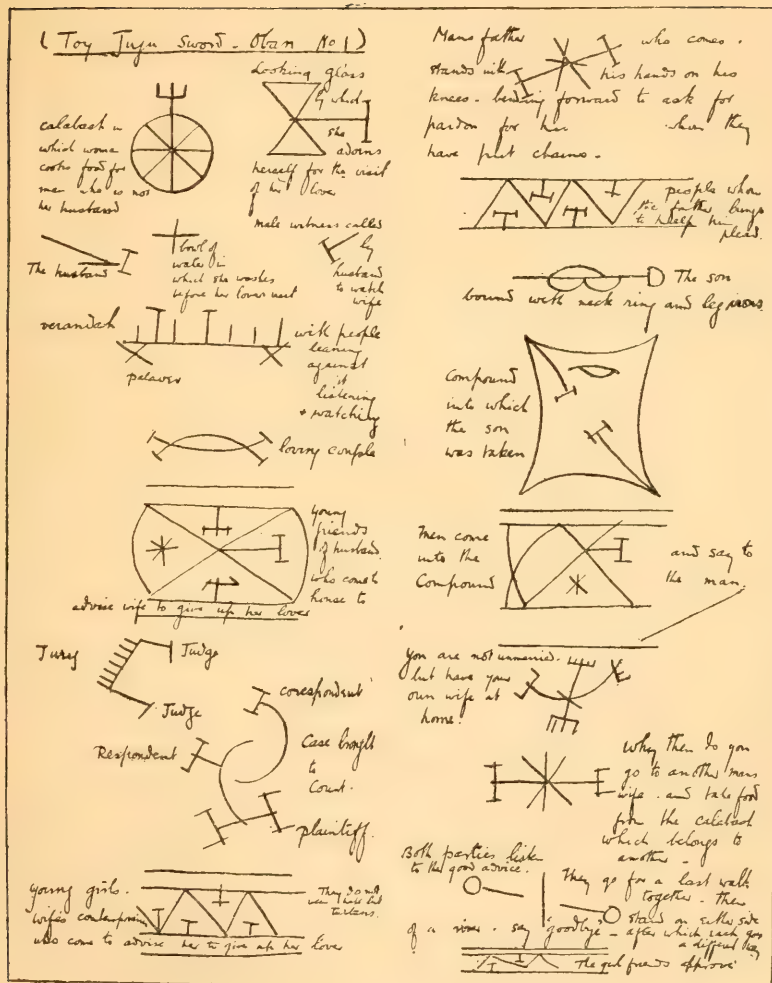 ( Toy Juju Sword - Oban No 1 )
calabash in
which woman
cooks food for
man who is not
her husband
Looking glass
by which
she
adorns
herself for the visit
of her lover
The husband
bowl of
water in
which she washes
before her lover
male witness called
by
husband
to watch
wife
verandah
with people
leaning
against
it
listening
+ watching
palaver
loving couple
young
friends
of husband
who come to
house to
advise wife to give up her lover
Jury
Judge
Judge
corespondent
Respondent
Case brought
to
Court.
plaintiff.
young girls.
wife's
who come to advise her to give up her lover
They do not
but
Mans father
who comes.
stands with
his hands on his
knees - bending forward to ask for
pardon for her
whom they
have put chains.
people whom
the father brings
to help him
plead.
The son
bound with neck ring and leg irons
Compound
into which
the son
was taken
Men come
into the
Compound
and say to
the man.
You are not unmarried.
but have your
own wife at
home.
Why then do you
go to another mans
wife. and take food
from the calabash
which belongs to
another -
Both parties listen
to the good advice.
They go for a last walk
together - then
stand on either side
of a river. say "goodbye" - after which each goes
a different way
The girl friends approve